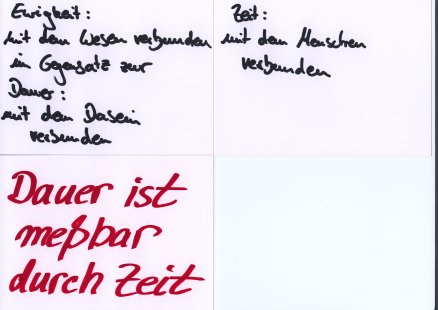 Ewigkeit:
mit dem Wesen verbunden
im Gegensatz zur
Dauer:
mit dem Dasein
verbunden
Zeit:
mit dem Menschen
verbunden
Dauer ist
meßbar
durch Zeit